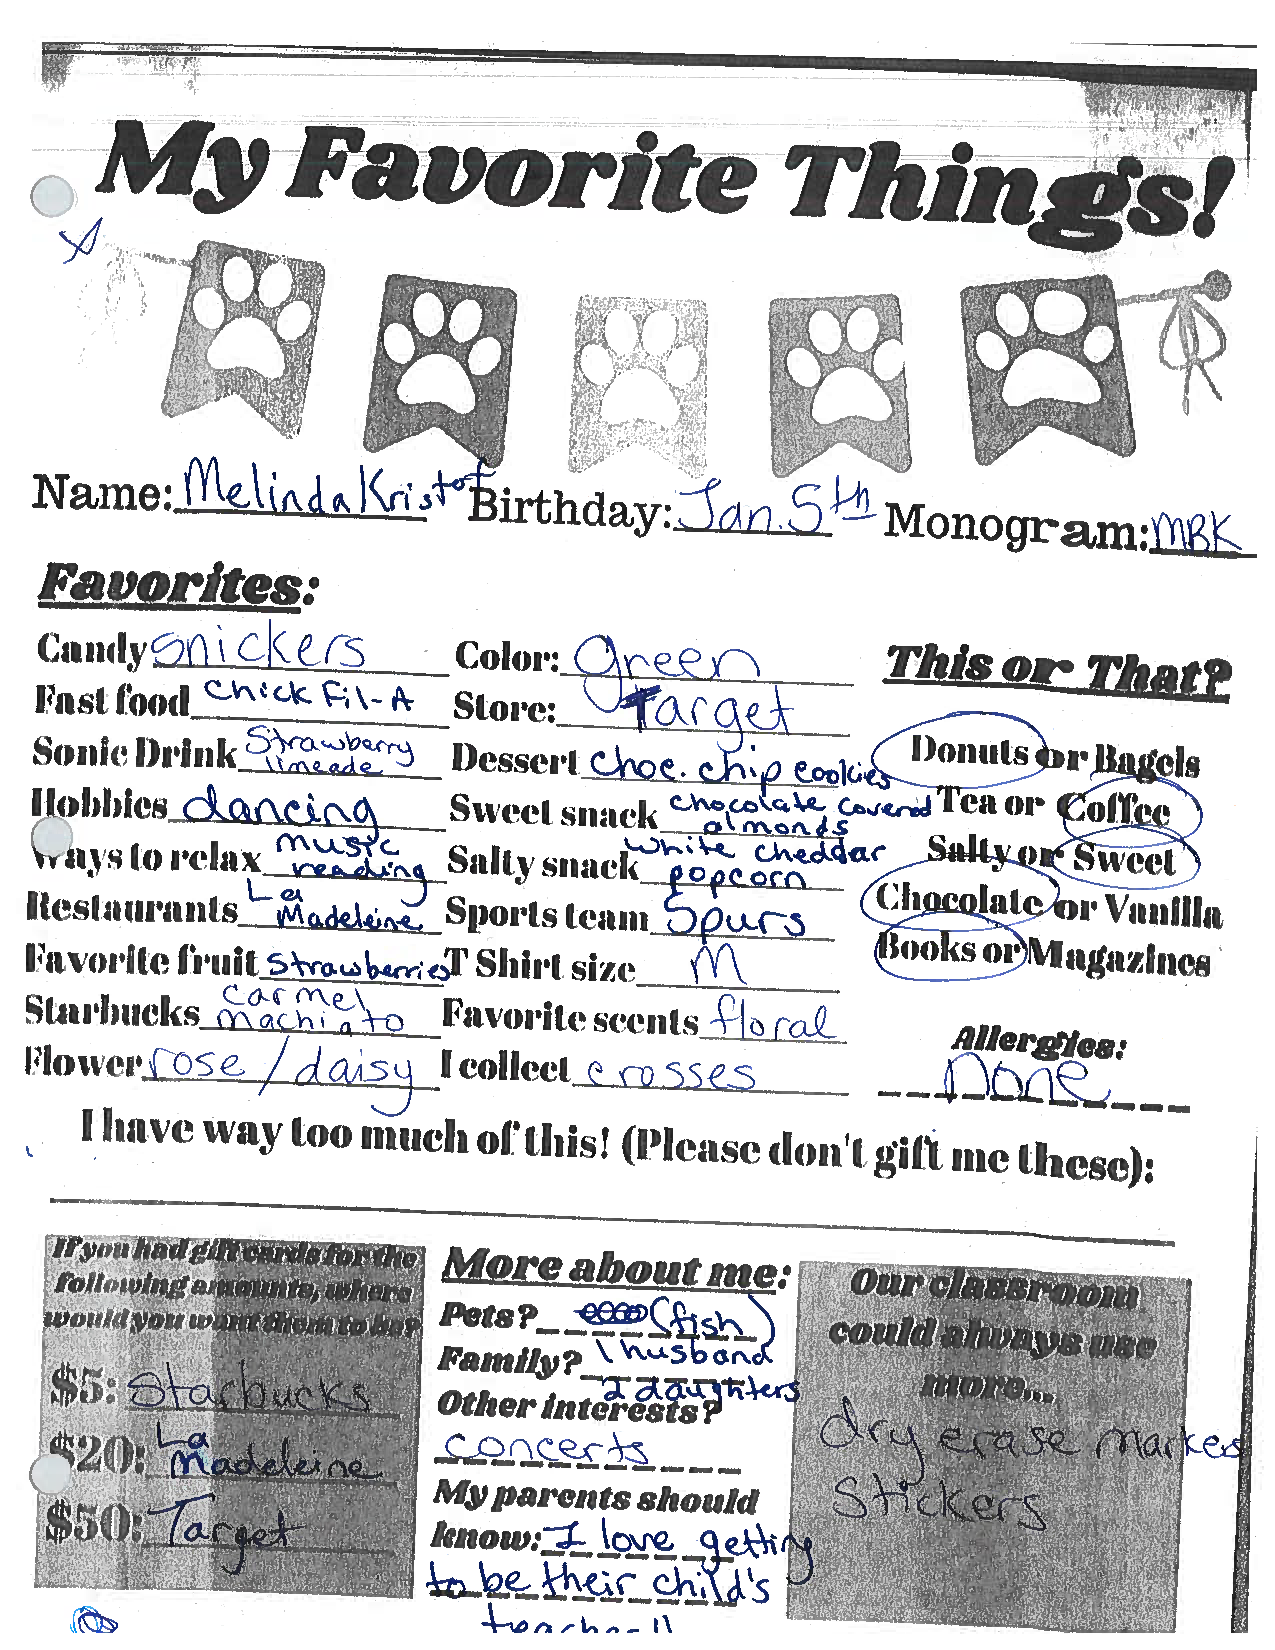 My Favorite Things!
Name: Melinda Kristof Birthday: Jan. 5th Monogram: MBK
Favorites:
Candy snickers
Fast food chick Fil-A
Sonic Drink Strawberry limeade
Hobbies dancing
Ways to relax music reading
Restaurants La Madeleine
Favorite fruit strawberries
Starbucks carmel machiato
Flower rose / daisy
Color: green
Store: Target
Dessert choc. chip cookies
Sweet snack chocolate covered almonds
Salty snack white cheddar popcorn
Sports team Spurs
T Shirt size M
Favorite scents floral
I collect crosses
This or That?
Donuts or Bagels
Tea or Coffee
Salty or Sweet
Chocolate or Vanilla
Books or Magazines
Allergies:
none
I have way too much of this! (Please don't gift me these):
If you had gift cards for the
following amounts, where
would you want them to be?
$5: Starbucks
$20: La Madeleine
$50: Target
More about me:
Pets? (fish)
Family? 1 husband
2 daughters
Other interests?
concerts
My parents should
know: I love getting
to be their child's
teacher!!
Our classroom
could always use
more...
dry erase markers
Stickers